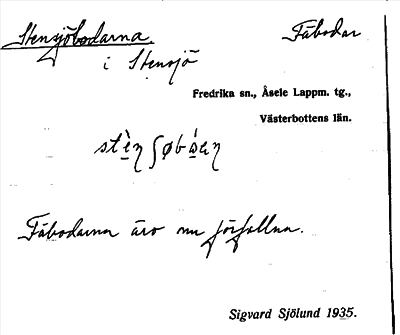 Stensjöbodarna. Fäbodar
i Stensjö
Fredrika sn., Åsele Lappm. tg.,
Västerbottens län.
Fäbodarna äro nu förfallna.
Sigvard Sjölund 1935.